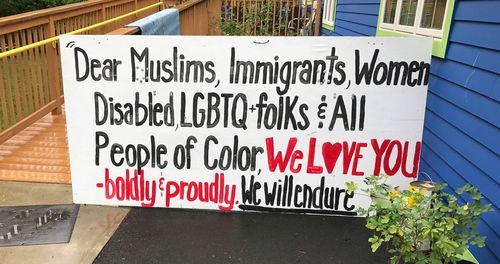 Dear Muslims, Immigrants, Women
Disabled, LGBTQ+folks & All
People of Color, We L♥VE YOU
-boldly & proudly. We will endure.